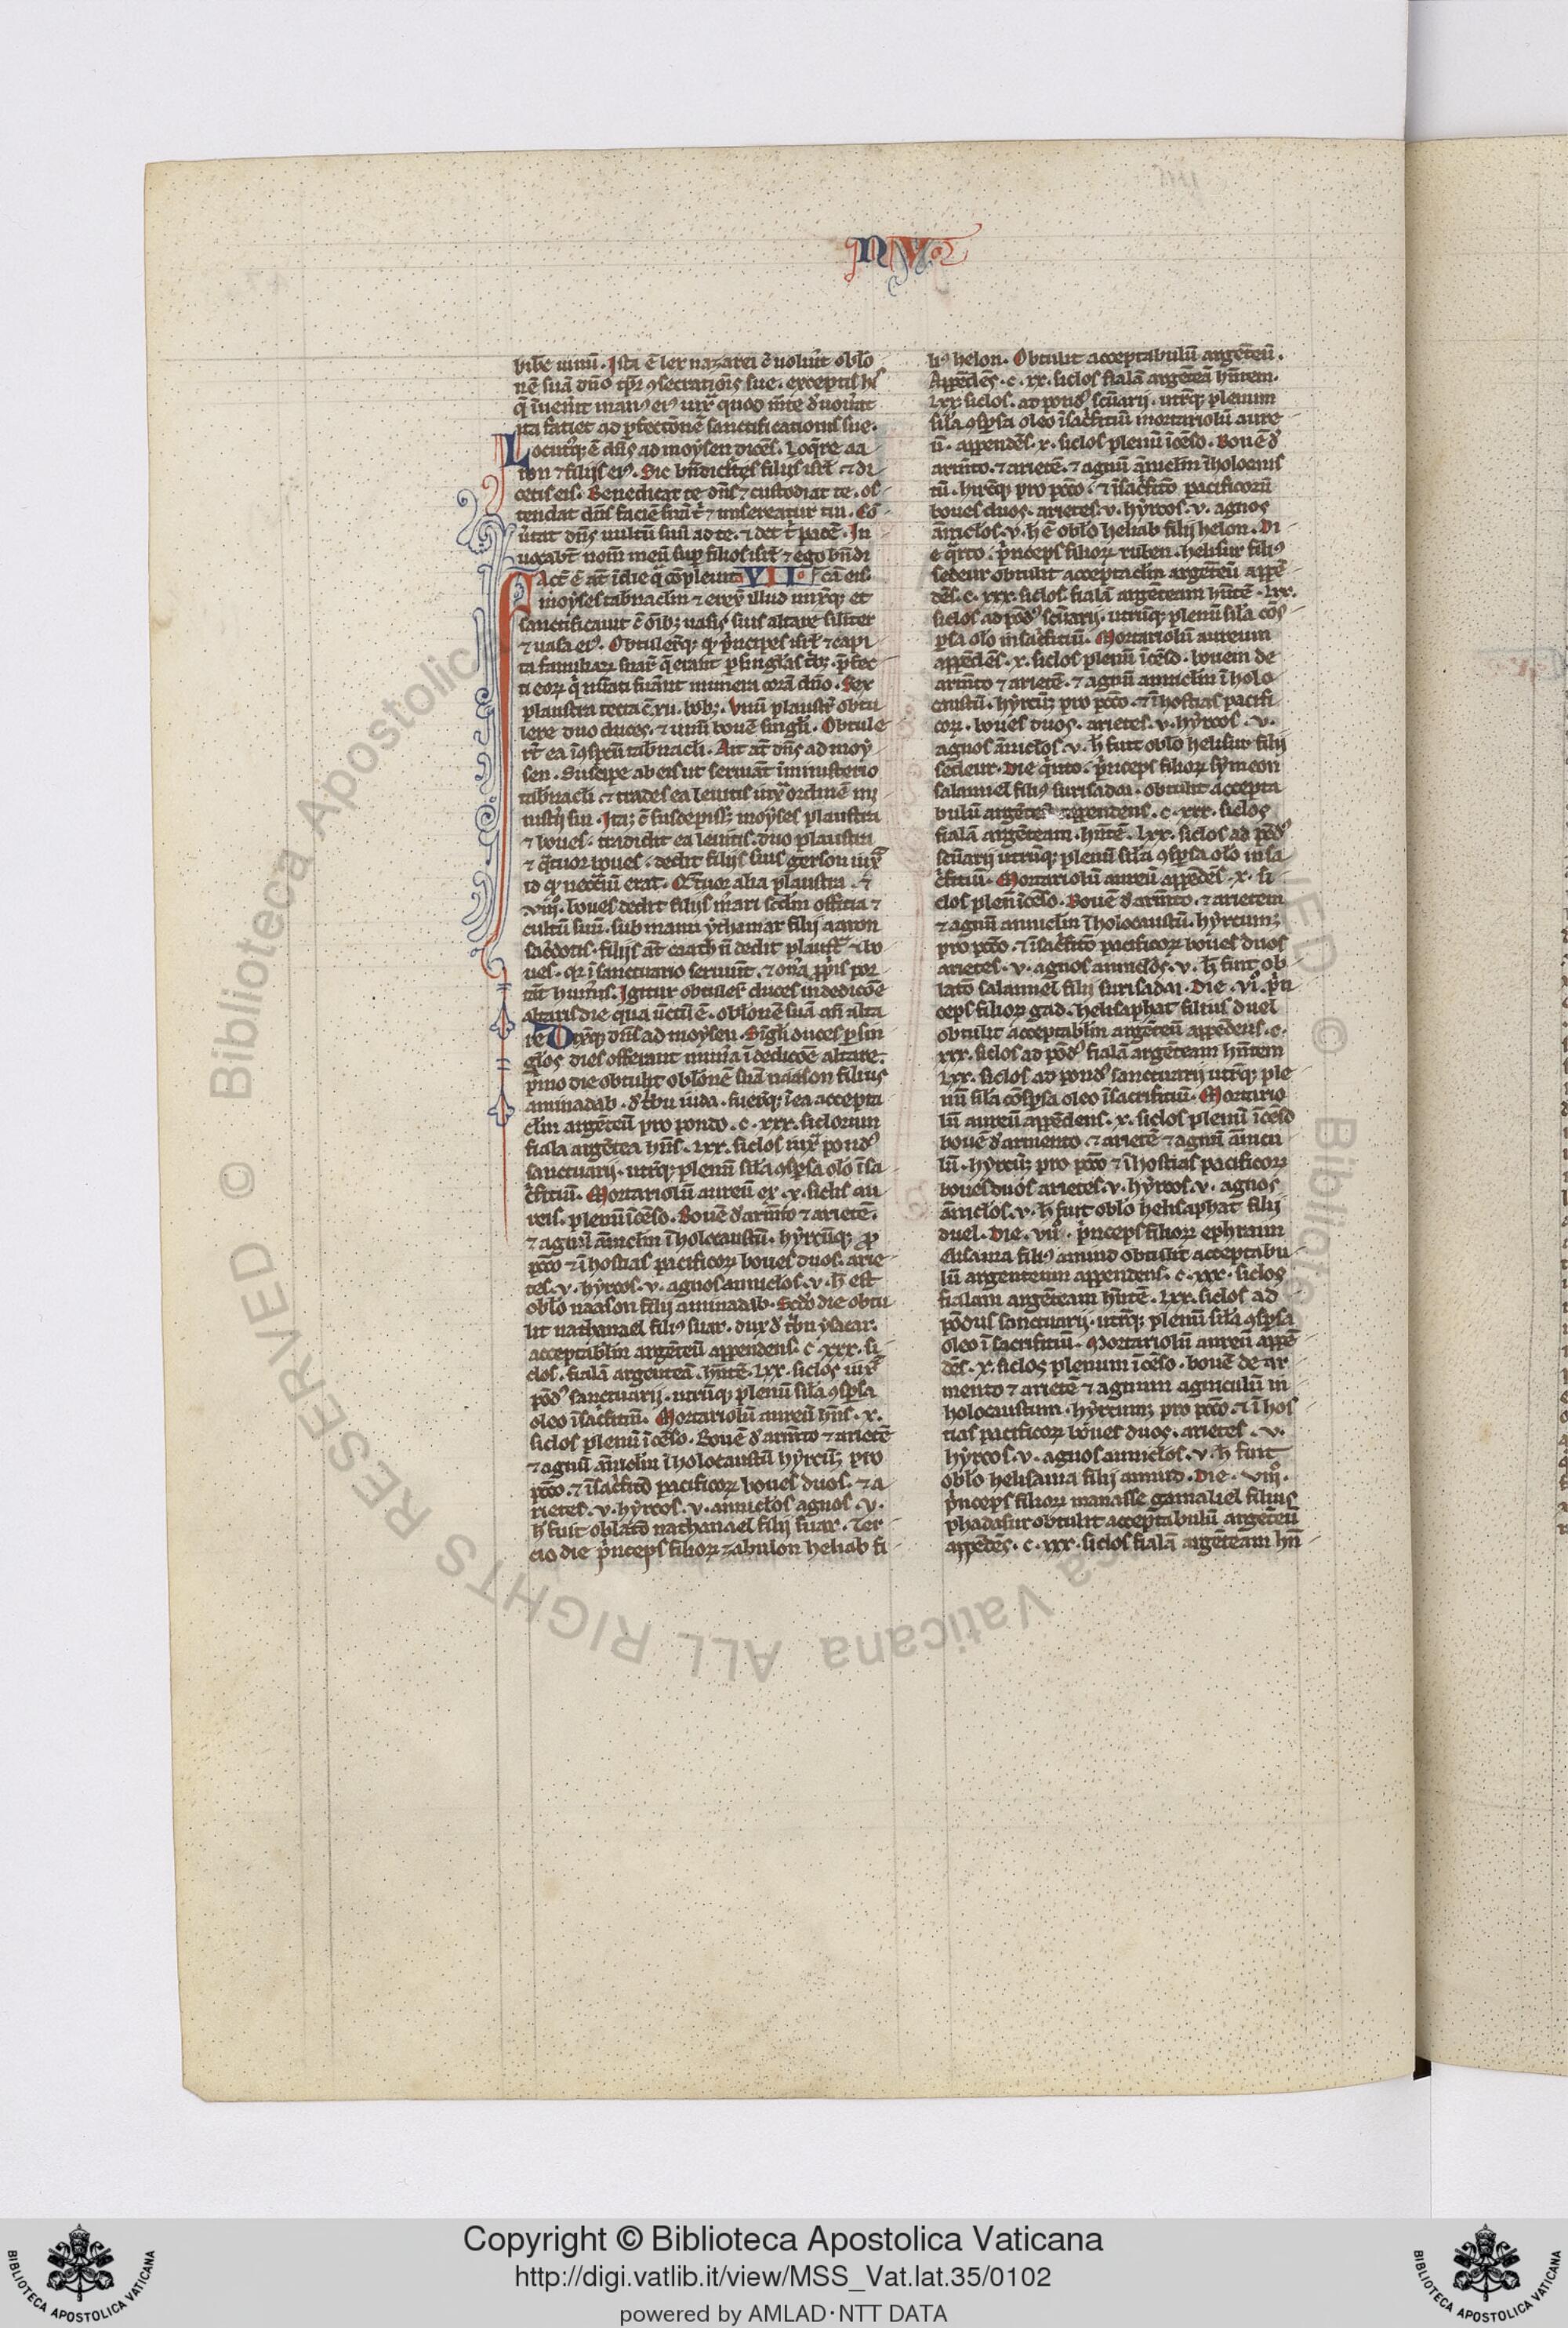 NVȜ
bib̄e uinū. Ista ē lex nazarei c̄ uoluīt oblo
nē suā dn̄o tp̄r ꝯsecrationis sue. exceptis his
q̄ īuen̄it man⁹ ei⁹ iux̄ quod mēte d̄uouāt
ita faciet ad ꝑfectōnē sanctificationis sue.
Locutꝰqꝫ ē dn̄s ad moẏsen dicēs. Loqͥre aa
ron ⁊ filijs ei⁹. Sic bn̄dicetis filijs isrl̄ ⁊ di
cetis eis. Benedicat te dn̄s ⁊ custodiat te. os
tendat dn̄s faciē suā t̄ ⁊ misereatur tui. Cō
ūtat dn̄s uultū suū ad te. ⁊ det t̄ pacē. In
uocabt̄ nom̄ meū suꝑ filios isrl̄ ⁊ ego bn̄di
Factū ē at̄ ī die q̄ cōpleuit VII cā eis.
moẏses tab̄naclm ⁊ erex̄ illud unxͥtqꝫ et
sanctificauit c̄ oībꝫ uasis suis altare silit̄er
⁊ uasa ei⁹. Obtulertqꝫ pͥncipes isrl̄ ⁊ capi
ta familiaꝝ suaꝝ q̄ erant ꝑ singlas tͥbꝫ p̄fec
ti eoꝝ qͥ nūati fuānt munera corā dn̄o. Sex
plaustra tecta c̄ xii. bobꝫ. Vnū plaustꝝ obtu
lere duo duces. ⁊ unū bouē singli. Obtule
rt̄ ea ī ꝯspctū tab̄nacli. Ait at̄ dn̄s ad moẏ
sen. Suscipe ab eis ut seruāt in ministerio
tab̄nacli ⁊ trades ea leuitis iux̄ ordinē mi
nistij sui. Itaqꝫ c̄ suscepissꝫ moẏses plaustra
⁊ boues. tradidit ea leuitis. duo plaustra
⁊ qͣtuor boues. dedit filijs suis gerson iux̄
id qͩ necc̄iū erat. Qͣtuor alia plaustra. ⁊
viii. boues dedit filijs m̄ari scdm officia ⁊
cultū suū. sub manu ẏthamar filij aaron
sac̄dotis. filijs at̄ caath n̄ dedit plaustͣ ⁊ bo
ues. qꝛ ī sanctuario seruiūt. ⁊ on̄a ꝓpͥis por
tāt hum̄is. Igitur obtuler̄ duces in dedicōe
altaris die qua ūctū ē. oblonē suā an̄ alta
re Dixͥtqꝫ dn̄s ad moẏsen. Sīgli duces ꝑ sin
glos dies offerant mun̄a ī dedicōe altare.
pͥmo die obtulit oblonē suā naason filius
aminadab. d̄ tͥbu iuda. fuertqꝫ ī ea accepta
clm argēteū pro pondo. c. xxx. siclorum
fiala argētea hn̄s. lxx. siclos iux̄ pond⁹
sanctuarij. utrūqꝫ plenū sila ꝯspsa oleo ī sa
cͥficiū. Mortariolū aureū ex. x. siclis au
reis. plenū īcēso. Bouē d̄ arm̄to ⁊ arietē.
⁊ agnū āniclm ī holocaustū. hẏrcūqꝫ ꝓ
pcc̄o ⁊ ī hostias pacificoꝝ boues duos. arie
tes. v. hẏrcos. v. agnos aniclos. v. h̄ est
oblo naason filij aminadab. Scdo die obtu
lit nathanael fili⁹ suar. dux d̄ tͥbu ẏsacar.
acceptablm argēteū appendens. c. xxx. si
clos. fialā argenteā. hn̄tē. lxx. siclos iux̄
pōd⁹ sanctuarij. utrūqꝫ plenū sila ꝯspsa
oleo ī sac̄ficiū. Mortariolū aureū hn̄s. x.
siclos plenū īcēso. Bouē d̄ arm̄to ⁊ arietē
⁊ agnū āniclm ī holocaustū hẏrcūqꝫ pro
pcc̄o. ⁊ ī sac̄ficiō pacificoꝝ boues duos. ⁊ a
rietes. v. hẏrcos. v. anniclos agnos. v.
h̄ fuit oblatō nathanael filij suar. Ter
cio die pͥnceps filioꝝ zabulon heliab fi
li⁹ helon. Obtulit acceptabulū argēteū.
Appēdēs. c. xx. siclos fialā argēteā hn̄tem.
lxx siclos. ad pond⁹ sc̄uarij. utrūqꝫ plenum
sila ꝯspsa oleo ī sac̄ficiū mortariolū aure
ū. appendēs. x. siclos plenū īcēso. Bouē d̄
arm̄to. ⁊ arietē. ⁊ agnū āniclm ī holocaus
tū. hircūqꝫ pro pcc̄o. ⁊ ī sac̄ficō pacificorū
boues duos. arietes. v. hẏrcos. v. agnos
āniclos. v. h̄ ē oblo heliab filij helon. Di
e qͣrto. pͥnceps filioꝝ ruben. helisur fili⁹
sedeur obtulit acceptaclm argēteū appē
dēs. c. xxx. siclos. fialā argēteam hn̄tē. lxx.
siclos ad pōd⁹ sc̄uarij. utrūqꝫ plenū sila cōs
psa oleo in sac̄ficiū. Mortariolū aureum
appēdēs. x. siclos plenū īcēso. bouem de
arm̄to ⁊ arietē. ⁊ agnū anniclm ī holo
caustū. hẏrcūqꝫ pro pcc̄o. ⁊ ī hostias pacifi
coꝝ. boues duos. arietes. v. hẏrcos. v.
agnos āniclos. v. h̄ fuit oblo helisur filij
sedeur. Die qͥnto. pͥnceps filioꝝ sẏmeon
salamiel fili⁹ surisadai. obtulit accepta
bulū argēteū appendens. c. xxx. siclos
fialā argēteam. hn̄tē. lxx. siclos ad pōd⁹
sc̄uarij utrūqꝫ plenū sila ꝯspsa oleo in sa
cͥficiū. Mortariolū aureū appēdēs. x. si
clos plen̄ īcēso. Bouē d̄ arm̄to. ⁊ arietem
⁊ agnū anniclm ī holocaustū. hẏrcumqꝫ
pro pcc̄o. ⁊ ī sac̄ficō pacificoꝝ boues duos
arietes. v. agnos anniclos. v. h̄ fuit ob
latō salamiel filij surisadai. Die. vi. pͥn
ceps filioꝝ gad. helisaphat filius duel
obtulit acceptablm argēteū appēdens. c.
xxx. siclos ad pōd⁹ fialā argēteam hn̄tem
lxx. siclos ad pond⁹ sanctuarij utrūqꝫ ple
nū sila cōspsa oleo ī sacrificiū. Mortario
lū aureū appēdens. x. siclos plenū īcēso
bouē d̄ armento. ⁊ arietē ⁊ agnū ānicu
lū. hẏrcūqꝫ pro pcc̄o ⁊ ī hostias pacificoꝝ
boues duos arietes. v. hẏrcos. v. agnos
āniclos. v. h̄ fuit oblo helisaphat filij
duel. Die. vii. pͥnceps filioꝝ ephraim
elisama fili⁹ amiud obtulit acceptabu
lū argenteum appendens. c. xxx. siclos
fialam argēteam hn̄tē. lxx. siclos ad
pōdus sanctuarij. utrūqꝫ plenū sila ꝯspsa
oleo ī sacrificiū. Mortariolū aureū appē
dēs. x. siclos plenum īcēso. bouē de ar
mento ⁊ arietē ⁊ agnum agniculū in
holocaustum. hẏrcumqꝫ pro pcc̄o ⁊ ī hos
tias pacificoꝝ boues duos. arietes. v.
hẏrcos. v. agnos anniclos. v. h̄ fuit
oblo helisama filij amiud. Die. viii.
pͥnceps filioꝝ manasse gamaliel filius
phadasur obtulit acceptabulū argēteū
appēdēs. c. xxx. siclos fialā argēteam hn̄
© Biblioteca Apostolica Vaticana ALL RIGHTS RESERVED
Copyright © Biblioteca Apostolica Vaticana
http://digi.vatlib.it/view/MSS_Vat.lat.35/0102
powered by AMLAD·NTT DATA
BIBLIOTECA APOSTOLICA VATICANA
BIBLIOTECA APOSTOLICA VATICANA